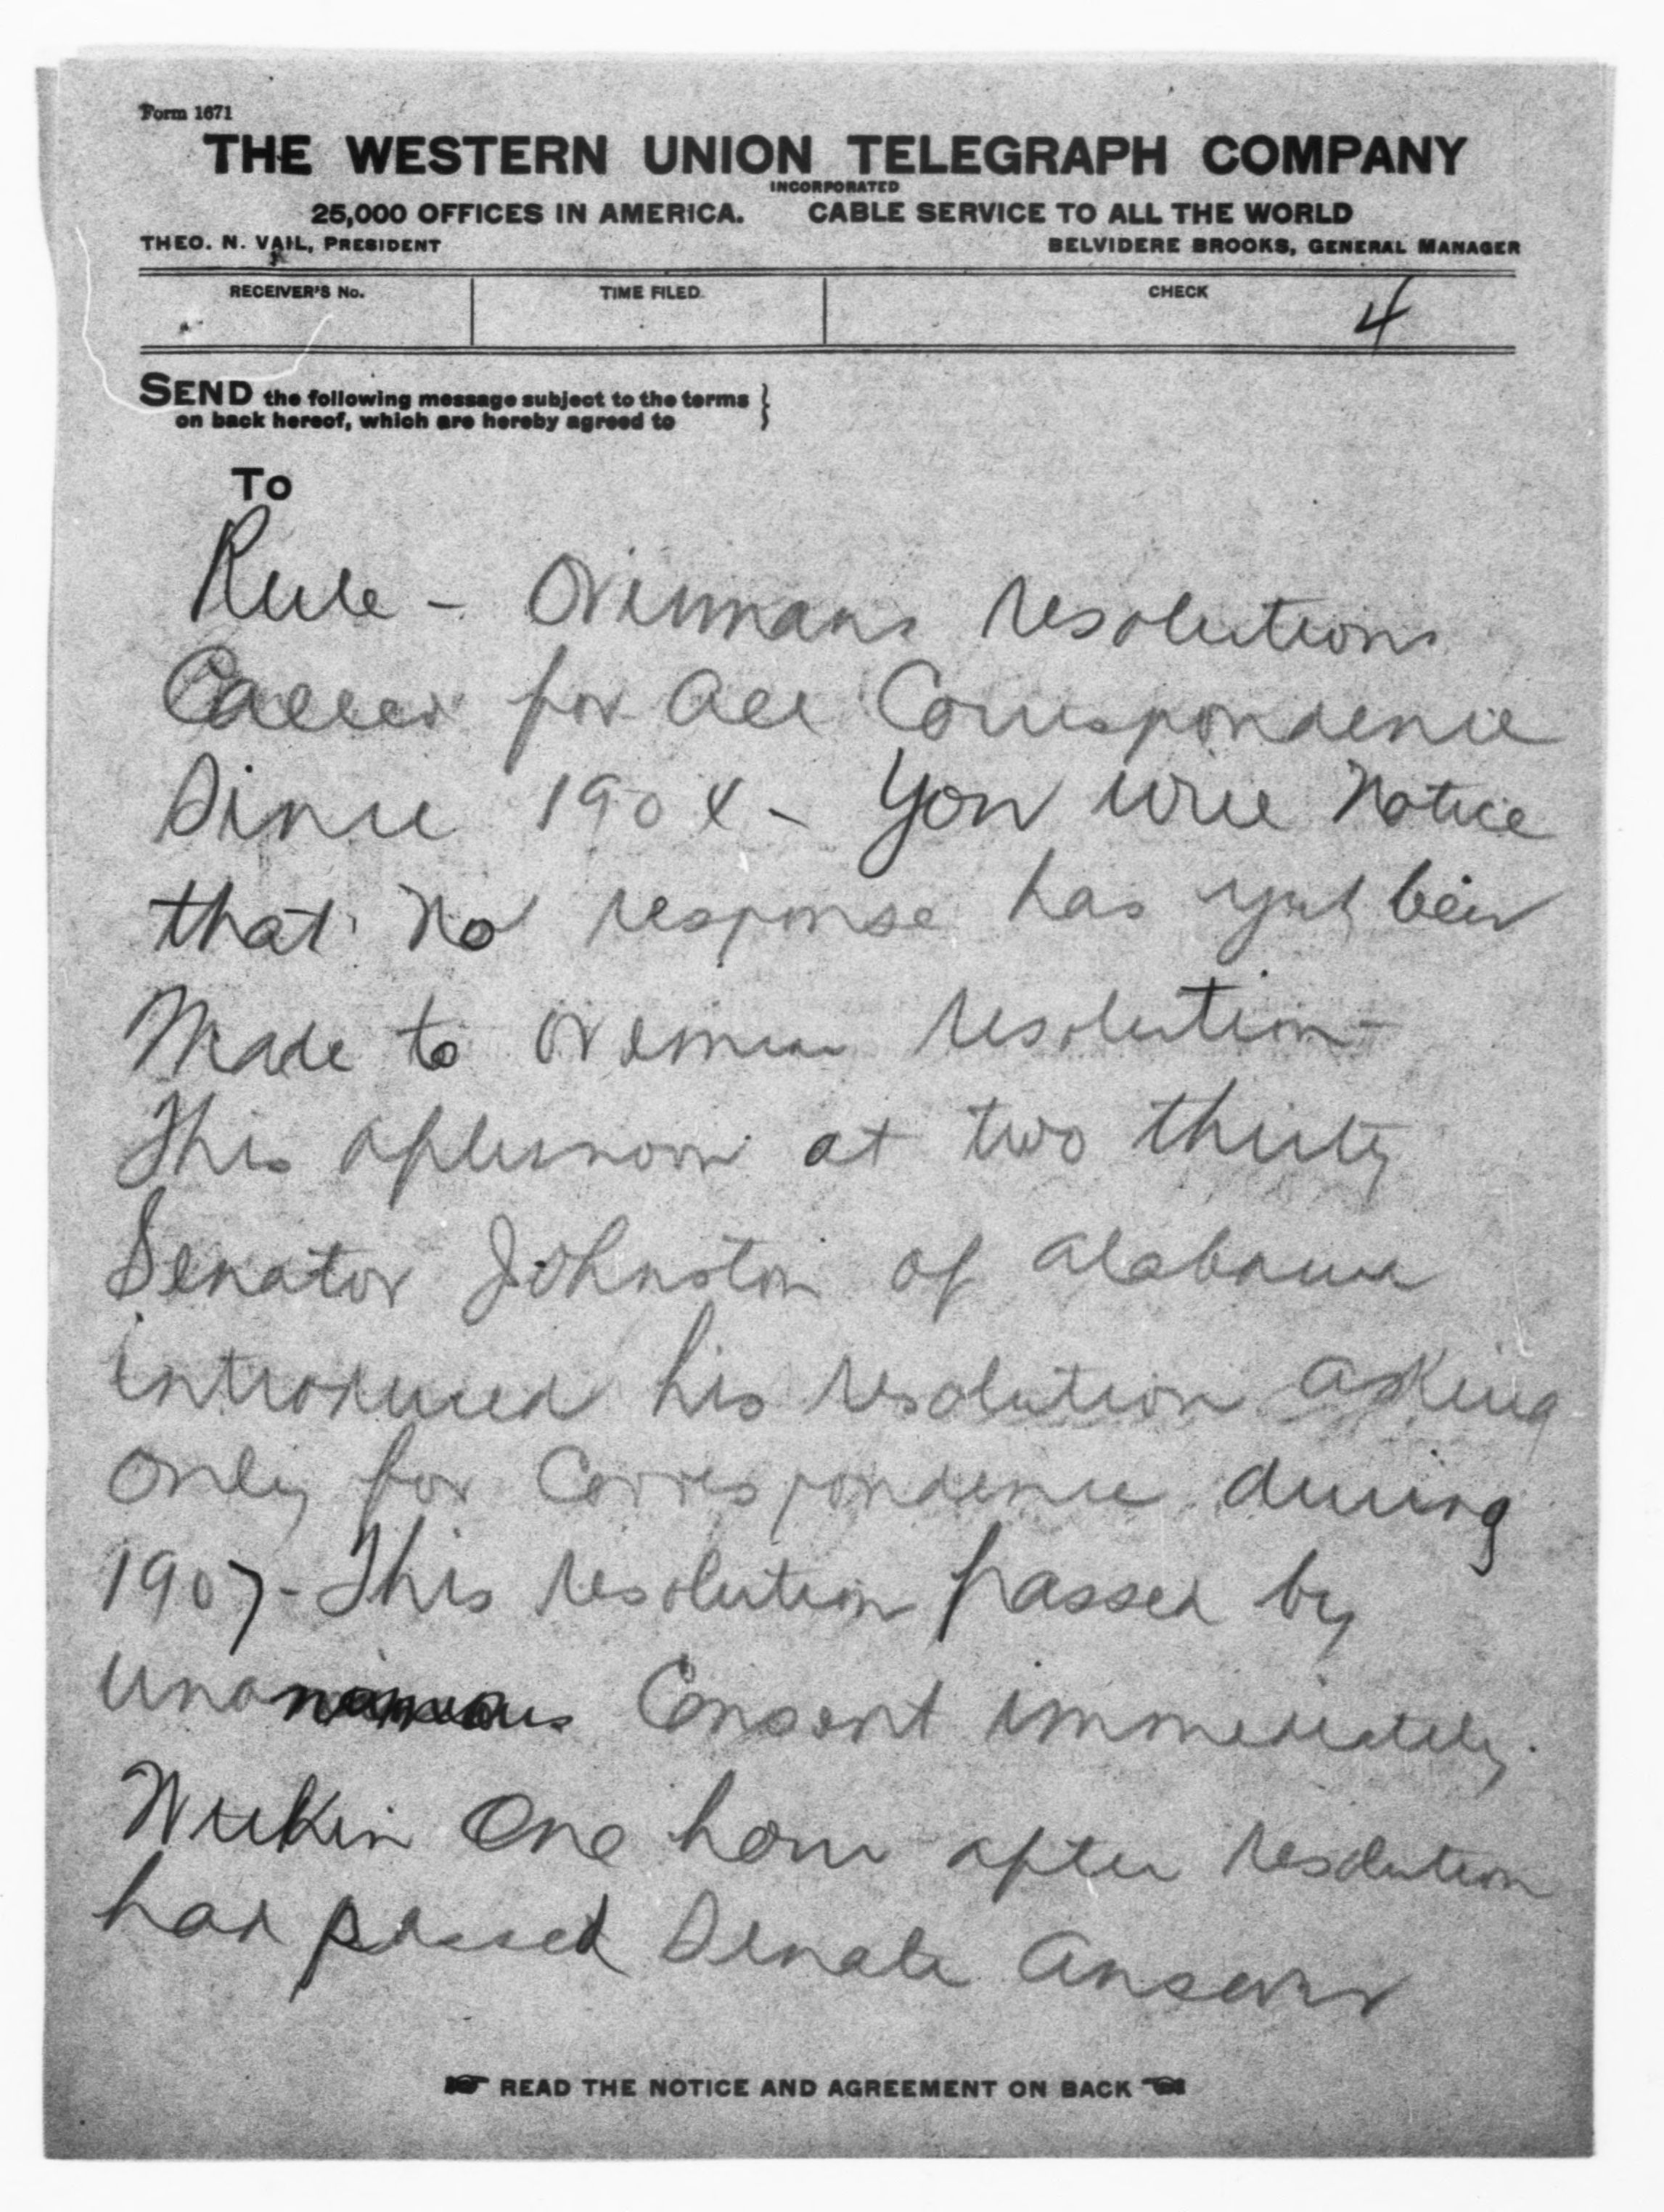 Form 1671
THE WESTERN UNION TELEGRAPH COMPANY
INCORPORATED
25,000 OFFICES IN AMERICA. CABLE SERVICE TO ALL THE WORLD
THEO. N. VAIL, PRESIDENT BELVIDERE BROOKS, GENERAL MANAGER
RECEIVER'S No. TIME FILED CHECK
4
SEND the following message subject to the terms
on back hereof, which are hereby agreed to
To
Rule - Overmans resolutions
Called for all Correspondence
Since 1904 - You will Notice
that No response has yet been
Made to Overman resolution -
This afternoon at two thirty
Senator Johnston of Alabama
introduced his resolution asking
only for Correspondence during
1907 - This resolution passed by
Consent immediately.
Within One hour after resolution
had passed Senate Answer
READ THE NOTICE AND AGREEMENT ON BACK